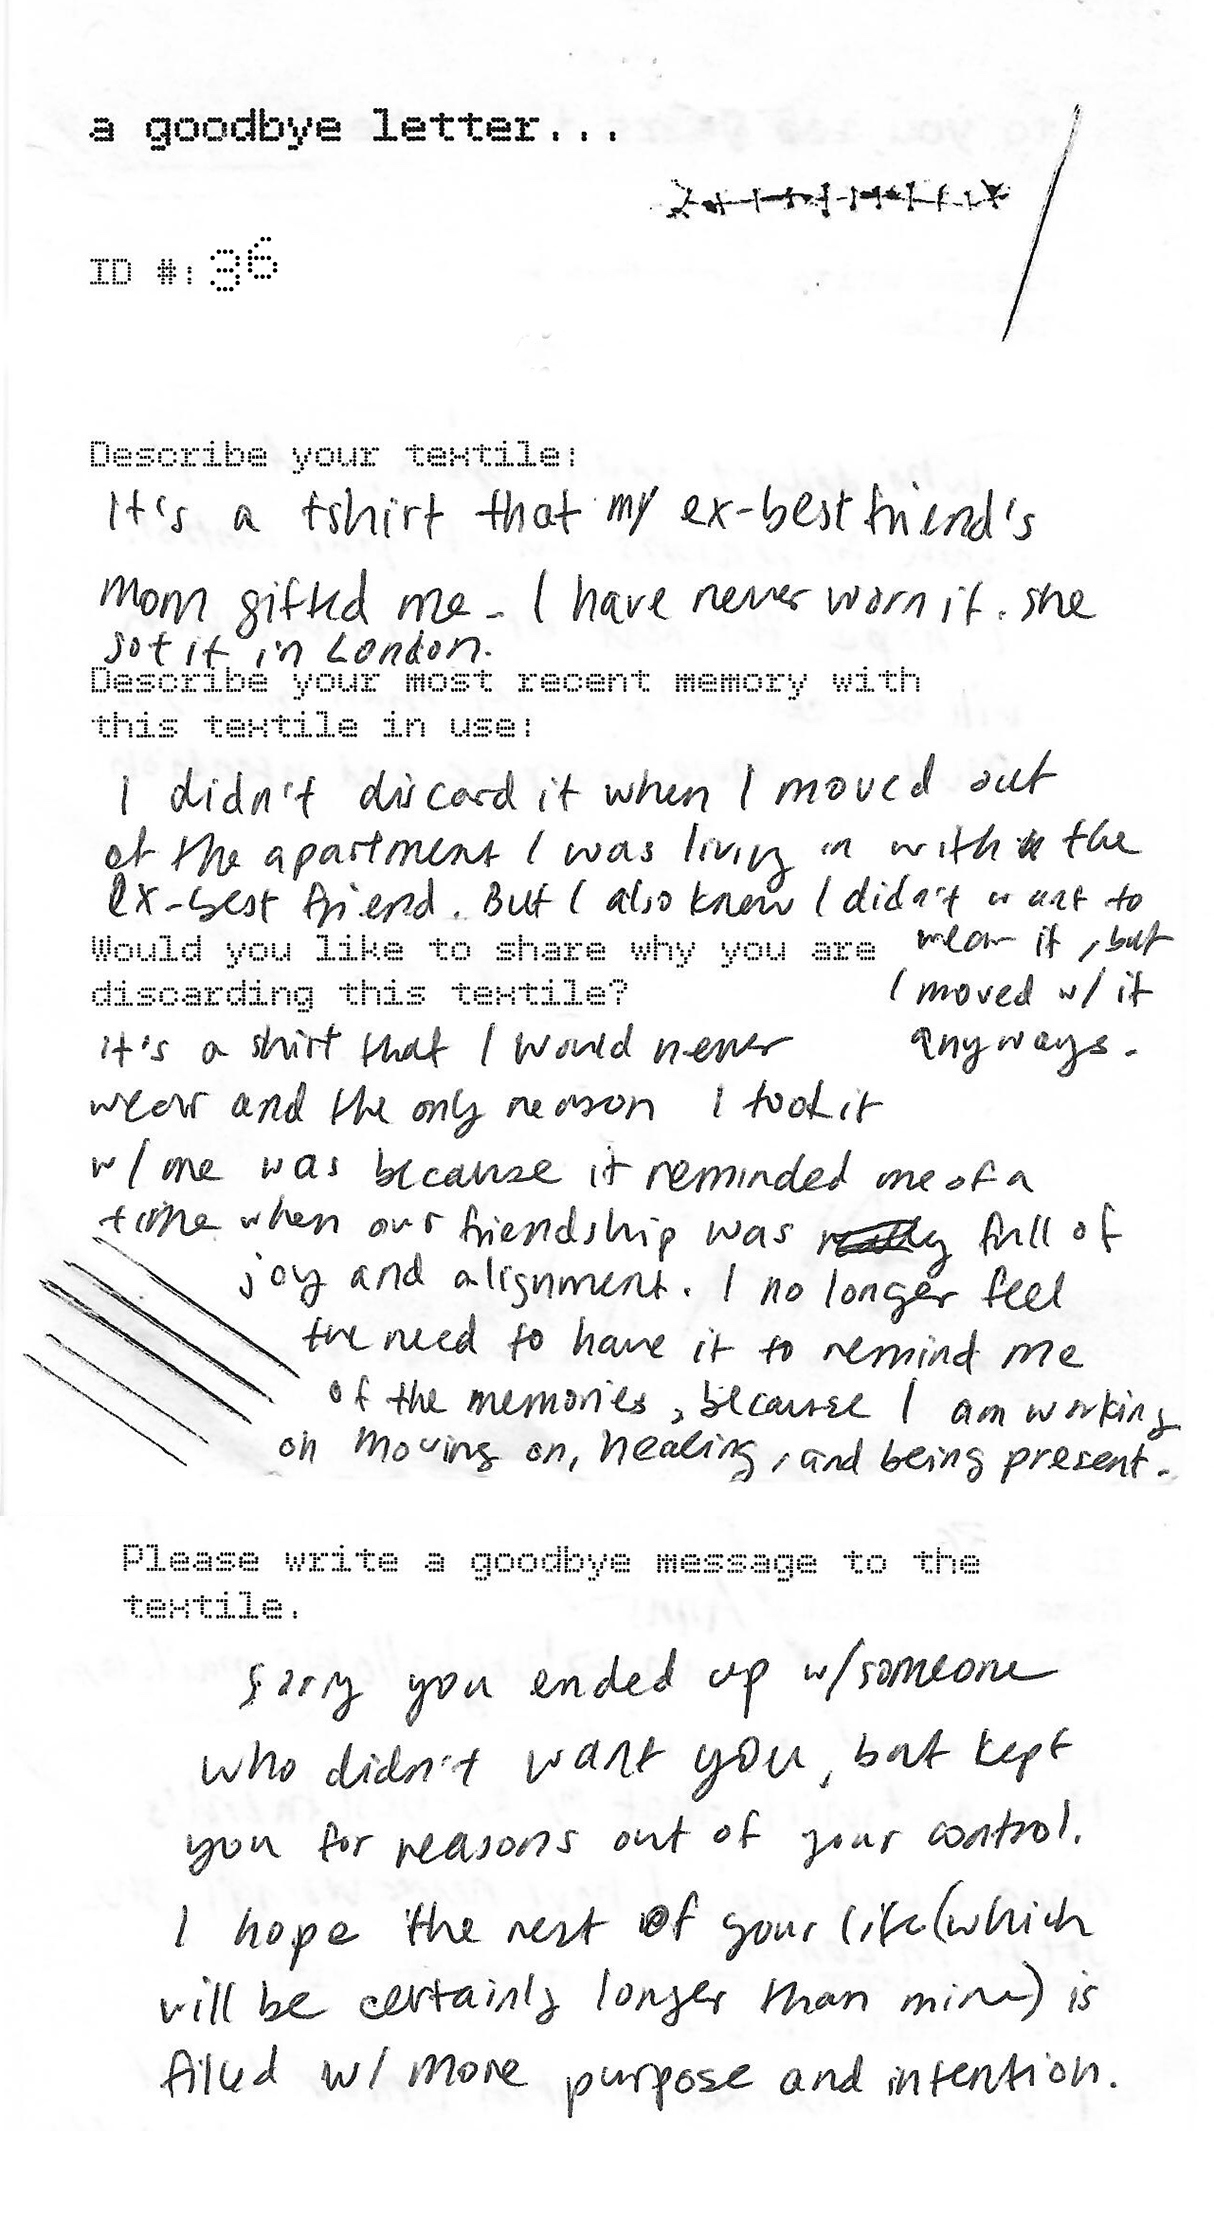 a goodbye letter...
ID #: 36
Describe your textile:
It's a tshirt that my ex-best friend's
mom gifted me. I have never worn it. she
got it in London.
Describe your most recent memory with
this textile in use:
I didn't discard it when I moved out
of the apartment I was living in with the
ex-best friend. But I also knew I didn't want to
wear it, but
I moved w/ it
anyways.
Would you like to share why you are
discarding this textile?
it's a shirt that I would never
wear and the only reason I took it
w/ me was because it reminded me of a
time when our friendship was really full of
joy and alignment. I no longer feel
the need to have it to remind me
of the memories, because I am working
on moving on, healing, and being present.
Please write a goodbye message to the
textile.
Sorry you ended up w/ someone
who didn't want you, but kept
you for reasons out of your control.
I hope the rest of your life (which
will be certainly longer than mine) is
filled w/ more purpose and intention.